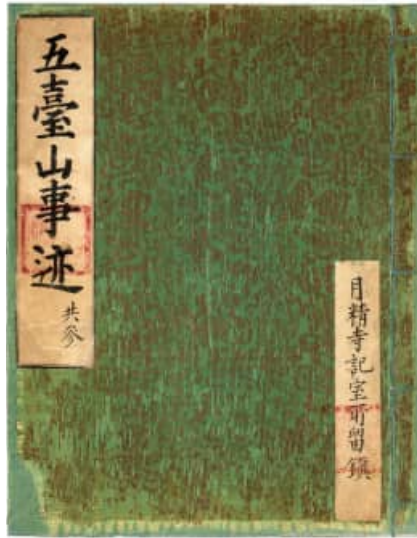 五臺山事迹
共參
月精寺記室所留鎭